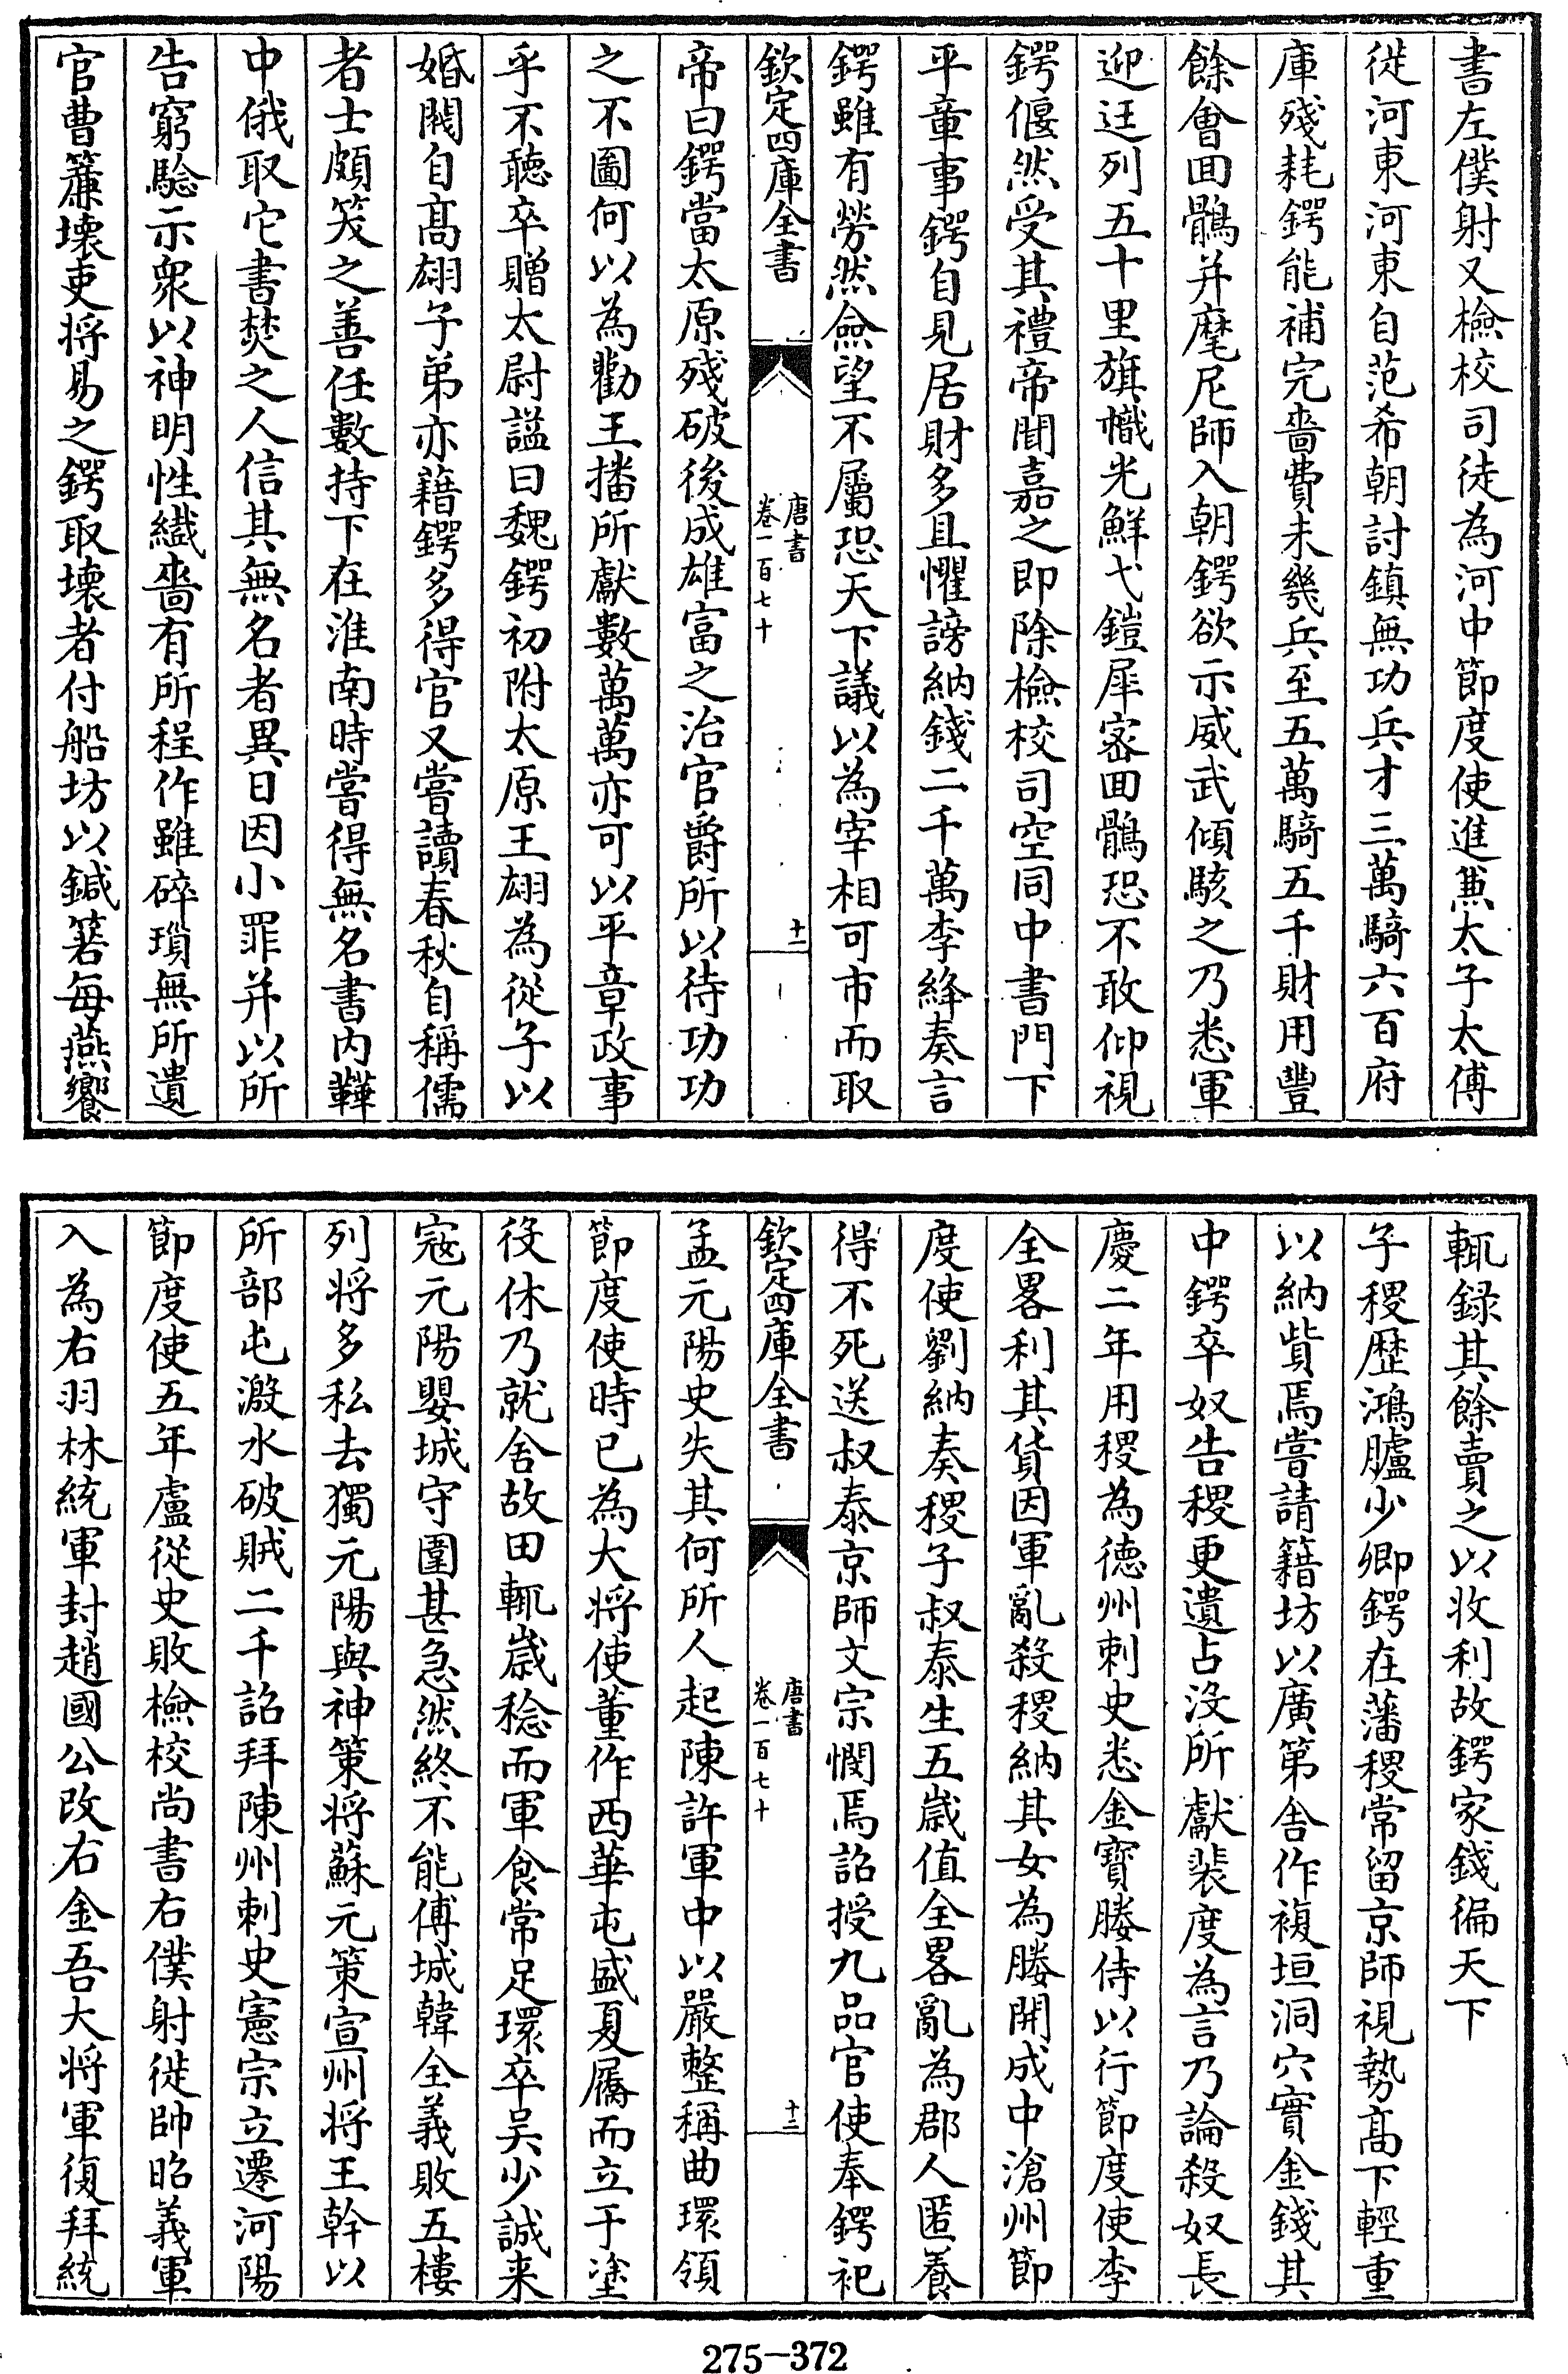 書左僕射又檢校司徒為河中節度使進兼太子太傅
徙河東河東自范希朝討鎮無功兵才三萬騎六百府
庫殘耗鍔能補完嗇費未幾兵至五萬騎五千財用豐
餘會回鶻并摩尼師入朝鍔欲示威武傾駭之乃悉軍
迎迋列五十里旗幟光鮮弋鎧犀密回鶻恐不敢仰視
鍔偃然受其禮帝聞嘉之即除檢校司空同中書門下
平章事鍔自見居財多且懼謗納錢二千萬李絳奏言
鍔雖有勞然僉望不屬恐天下議以為宰相可市而取
欽定四庫全書
唐書
卷一百七十
十一
帝曰鍔當太原殘破後成雄富之治官爵所以待功功
之不圖何以為勸王播所獻數萬萬亦可以平章政事
乎不聽卒贈太尉謚曰魏鍔初附太原王翃為從子以
婚閥自高翃子弟亦藉鍔多得官又嘗讀春秋自稱儒
者士頗笑之善任數持下在淮南時嘗得無名書内鞾
中俄取它書焚之人信其無名者異日因小罪并以所
告窮驗示衆以神明性纎嗇有所程作雖碎瑣無所遺
官曹簾壊吏将易之鍔取壊者付船坊以鍼箬每燕饗
輒録其餘賣之以收利故鍔家錢徧天下
子稷歴鴻臚少卿鍔在藩稷常留京師視勢高下輕重
以納貲焉嘗請籍坊以廣第舍作複垣洞穴實金錢其
中鍔卒奴告稷更遺占没所獻裴度為言乃論殺奴長
慶二年用稷為德州刺史悉金寶媵侍以行節度使李
全畧利其貨因軍亂殺稷納其女為媵開成中滄州節
度使劉納奏稷子叔泰生五歲值全畧亂為郡人匿養
得不死送叔泰京師文宗憫焉詔授九品官使奉鍔祀
欽定四庫全書
唐書
卷一百七十
十二
孟元陽史失其何所人起陳許軍中以嚴整稱曲環領
節度使時已為大将使董作西華屯盛夏屩而立于塗
役休乃就舍故田輒歲稔而軍食常足環卒吳少誠来
寇元陽嬰城守圍甚急然終不能傅城韓全義敗五樓
列将多私去獨元陽與神策将蘇元策宣州将王幹以
所部屯溵水破賊二千詔拜陳州刺史憲宗立遷河陽
節度使五年盧從史敗檢校尚書右僕射徙帥昭義軍
入為右羽林統軍封趙國公改右金吾大将軍復拜統
275-372